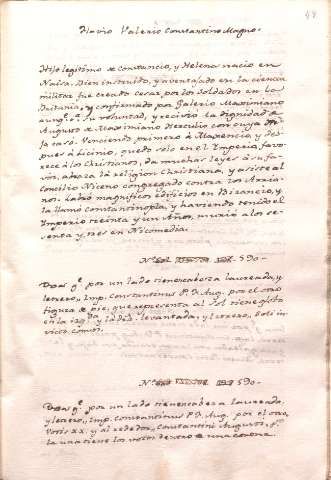 Flavio Valerio Constantino Magno.
Hijo legitimo de Constancio, y Helena nació en
Naisa. Bien instruido, y aventajado en la ciencia
militar fue creado Cesar por los soldados en la
Britania, y confirmado por Galerio Maximiano
aunq.e Su voluntad, y recivio la dignidad de
Augusto de Maximiano Herculio con cuya
se casó. Venciendo primero à Maxencio, y des-
pues à Licinio, quedo solo en el Imperio, favo-
rece à los Christianos, da muchas leyes à su fa-
vor, abraza la religion Christiana, y asiste al
Concilio Niceno congregado contra los Arria-
nos. Labró magnificos edificios en Bizancio, y
la llamó Constantinopla, y haviendo tenido el
Imperio treinta y un Años, murió a los se-
senta y tres en Nicomedia.
N.º 590.
q.e por un lado tiene cabeza laureada, y
letrero, Imp. Constantinus P. F. Aug. por el otro
figura de pie, que representa al Sol tiene globo
en la izq.da, y la dra. levantada, y letrero, Soli in-
victo Comiti.
N.º 590.
q.e por un lado tiene cabeza laureada,
y letrero, Imp. Constantinus P. F. Aug. por el otro,
Votis XX. y al rededor, Constantini Augusti,
la una tiene los votos dentro de una corona.